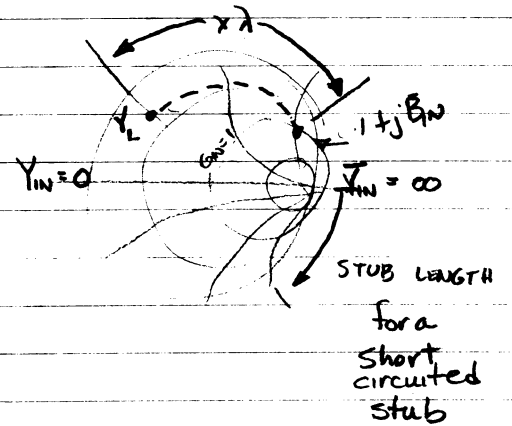 xλ
Y_L
1+jB_IN
G_IN=1
Y_IN = 0
Y_IN = ∞
STUB LENGTH
for a
short
circuited
stub